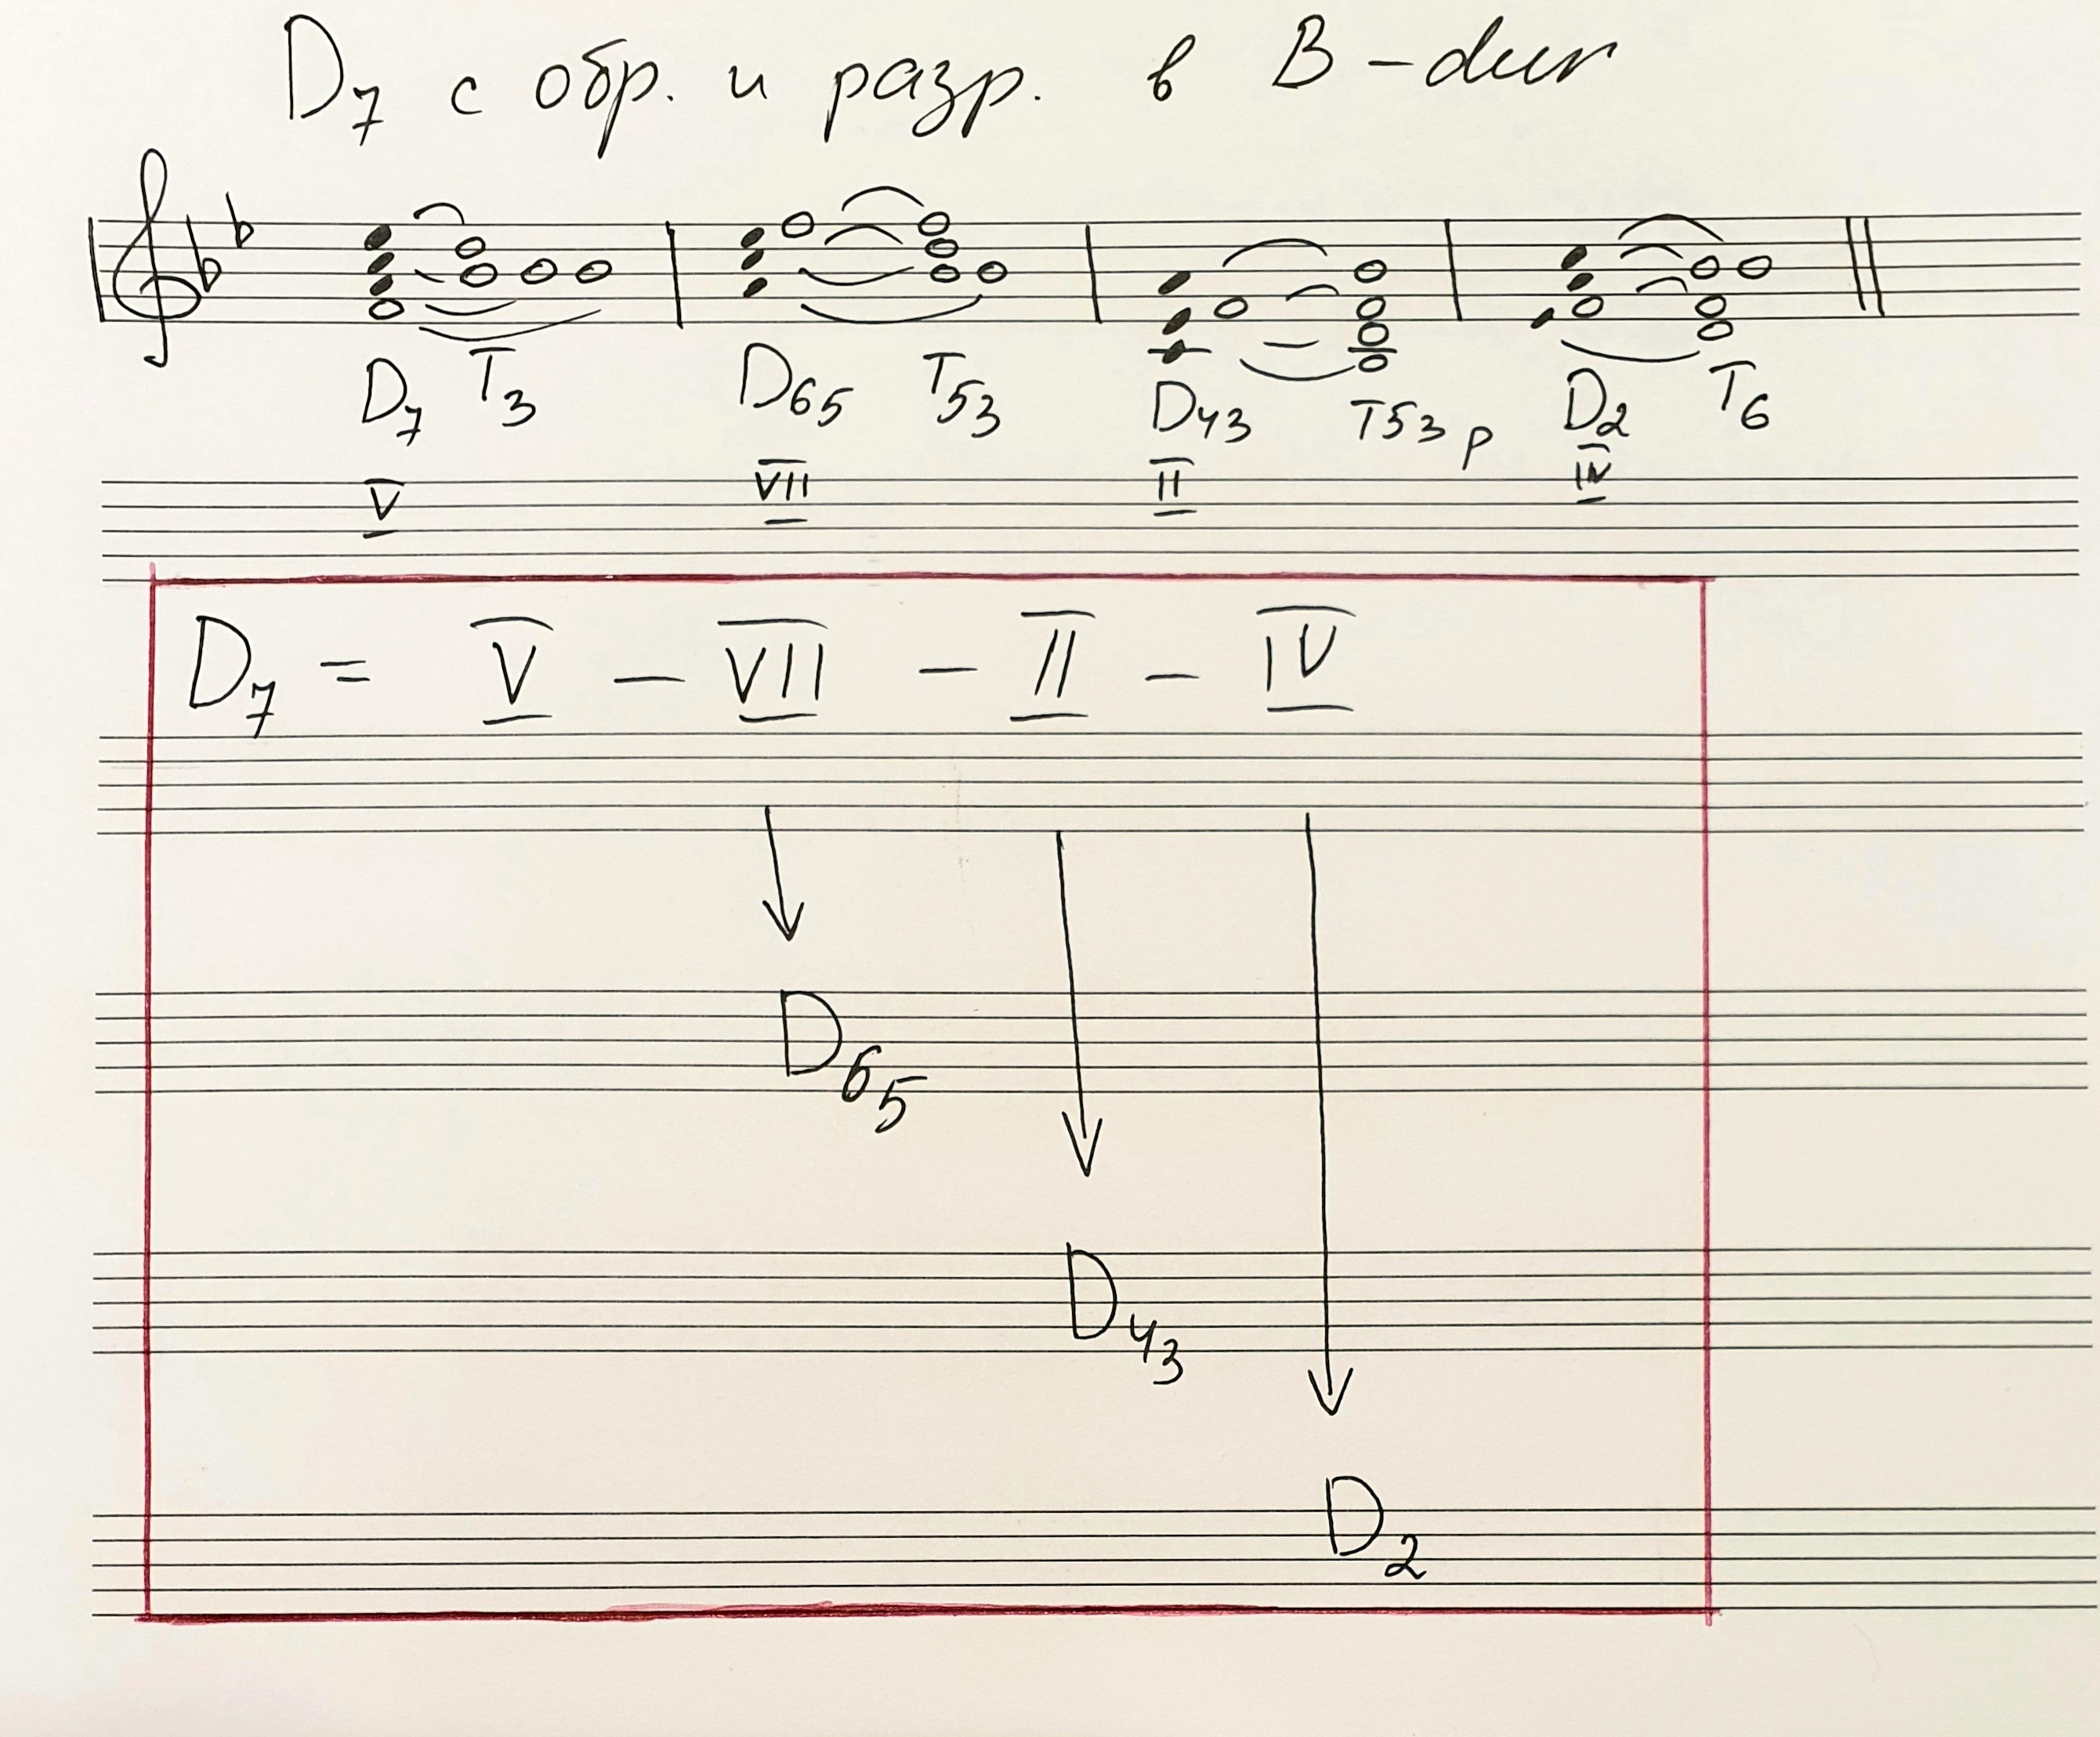 D7 с обр. и разр. в B-dur
D7 T3 D65 T53 D43 T53 p D2 T6
V VII II IV
D7 = V – VII – II – IV
D65
D43
D2